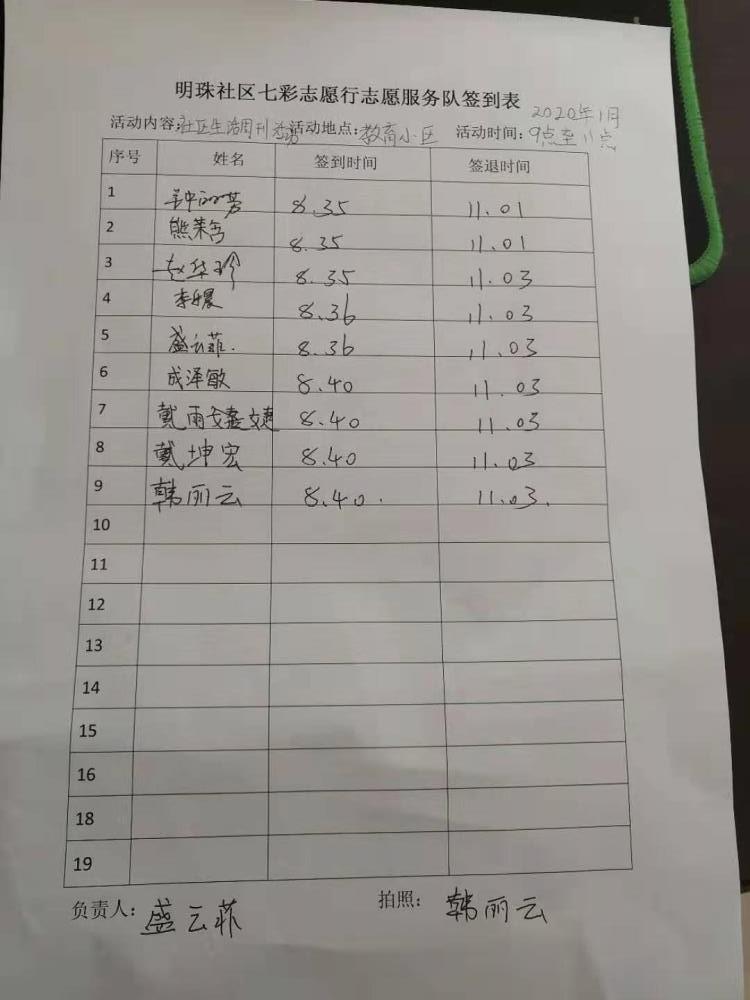 明珠社区七彩志愿行志愿服务队签到表
2020年1月
活动内容:社区生活周刊 活动地点:教育小区 活动时间:9点至11点
序号 姓名 签到时间 签退时间
1 8.35 11.01
2 熊荣 8.35 11.01
3 赵华珍 8.35 11.03
4 李 8.36 11.03
5 盛云菲. 8.36 11.03
6 成泽敏 8.40 11.03
7 戴雨 8.40 11.03
8 戴坤宏 8.40 11.03
9 韩丽云 8.40. 11.03.
10
11
12
13
14
15
16
18
19
负责人:盛云菲 拍照:韩丽云